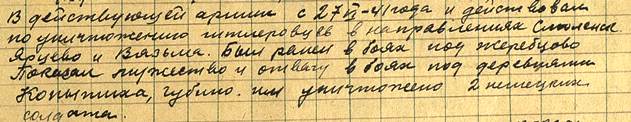 В действующей армии с 27/VI-41 года и действовал
по уничтожению гитлеровцев в направлениях Смоленск
Ярцево и Вязьма. Был ранен в боях под Жеребцово
Показал мужество и отвагу в боях под деревнями
Копытиха, Губино. им уничтожено 2 немецких
солдата.